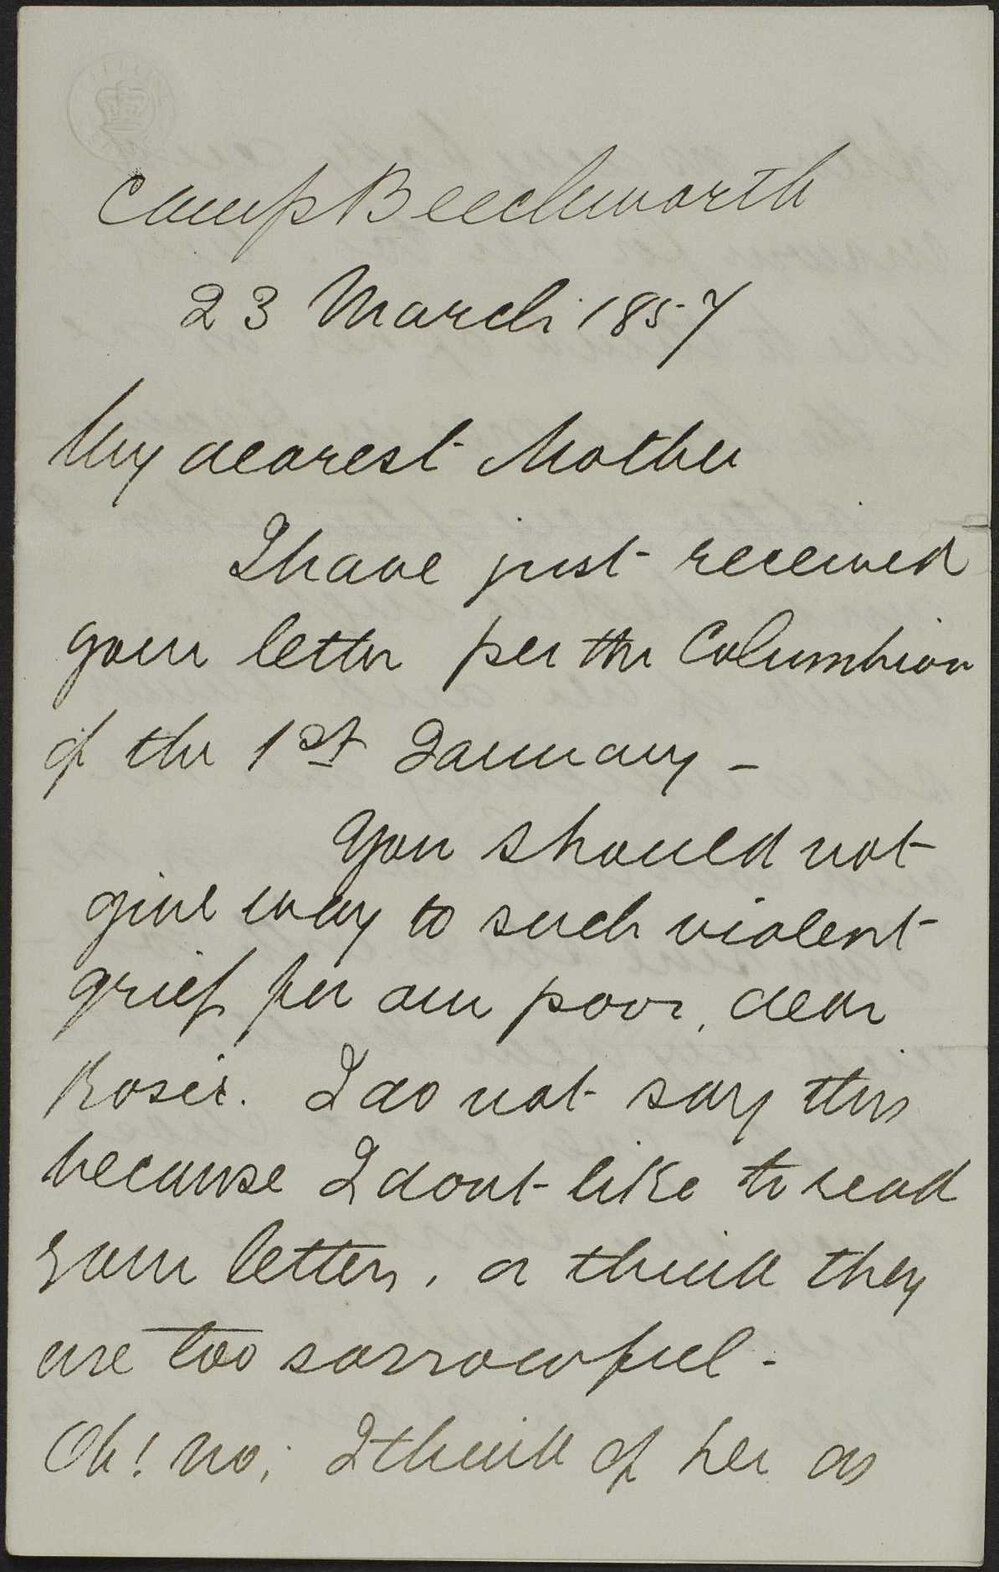 Camp Beechworth
23 March 1857
My dearest Mother
I have just received
your letter per the Columbian
of the 1st January -
You should not
give way to such violent
grief for our poor, dear
Rosie. I do not say this
because I dont like to read
your letters, or think they
are too sorrowful -
Oh! no; I think of her as